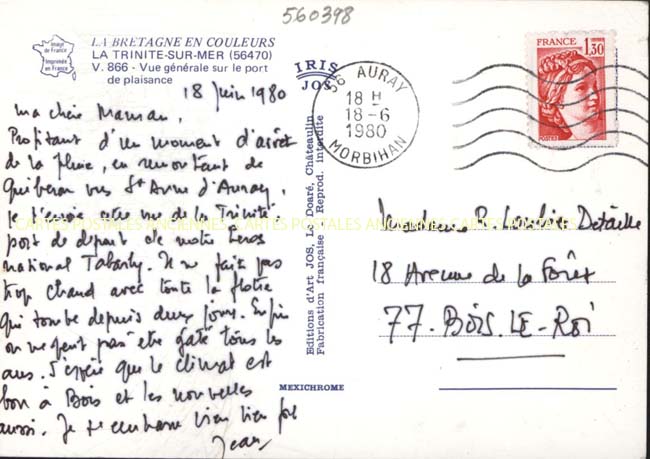 560398
Image de France
Imprimée en France
LA BRETAGNE EN COULEURS
LA TRINITE-SUR-MER (56470)
V. 866 - Vue générale sur le port
de plaisance
18 Juin 1980
ma chère Maman,
Profitant d'un moment d'arrêt
de la pluie, en remontant de
Quiberon vers St Anne d'Auray,
je t'envoie cette vue de la Trinité
port de départ de notre héros
national Tabarly. Il ne fait pas
trop chaud avec toute la flotte
qui tombe depuis deux jours. Enfin
on ne peut pas être gâté tous les
ans. J'espère que le climat est
bon à Bois et les nouvelles
aussi. Je t'embrasse bien bien fort
Jean
IRIS
JOS
Editions d'Art JOS, Le Doaré, Châteaulin
Fabrication française - Reprod. interdite
MEXICHROME
56 AURAY
18 H
18-6
1980
MORBIHAN
FRANCE
1,30
POSTES
CARTES POSTALES ANCIENNES CARTES POSTALES ANCIENNES CARTES POSTALES ANCIENNES
Madame R. Detaille
18 Avenue de la Forêt
77. BOIS-LE-ROI